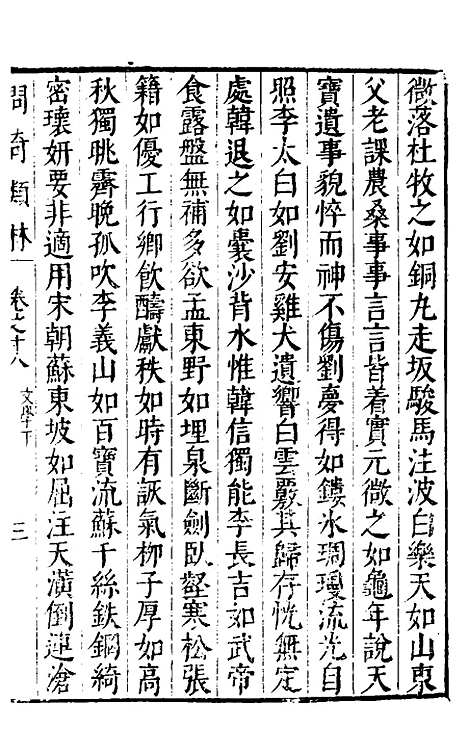 微落杜牧之如銅丸走坂駿馬注波白樂天如山東
父老課農桑事事言言皆着實元微之如龜年說天
寶遺事貌悴而神不傷劉夢得如鏤氷琱瓊流光自
照李太白如劉安雞犬遺響白雲覈其歸存恍無定
處韓退之如囊沙背水惟韓信獨能李長吉如武帝
食露盤無補多欲孟東野如埋泉斷劍臥壑寒松張
籍如優工行鄉飲醻獻秩如時有詼氣柳子厚如高
秋獨眺霽晚孤吹李義山如百寶流蘇千絲鉄鋼綺
密瓌妍要非適用宋朝蘇東坡如屈注天潢倒連滄
問奇類林 卷之十八 文學下 三